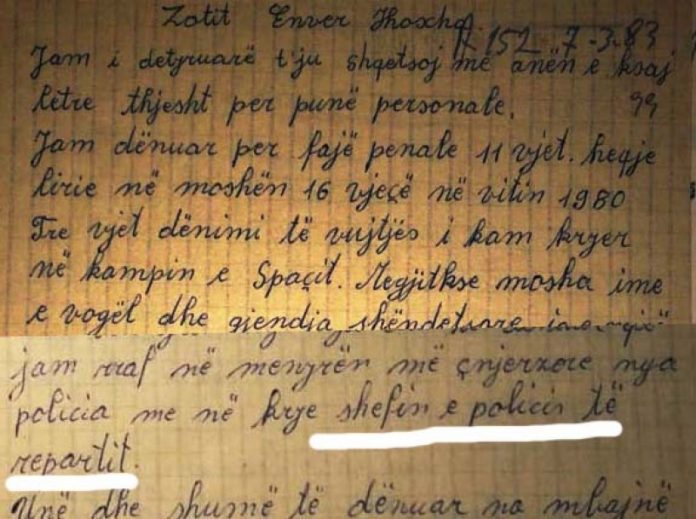 Zotit Enver Hoxha.
R. 152. 7-3-83
Jam i detyruarë t'ju shqetsoj më anën e ksaj
letre thjesht per punë personale. 99
Jam dënuar per fajë penale 11 vjet. heqje
lirie në moshën 16 vjeçë në vitin 1980
Tre vjet dënimi të vujtjës i kam kryer
në kampin e Spaçit. Megjitkse mosha ime
e vogël dhe gjendja shëndetsore
jam rraf në menyrën më çnjerzore nga
policia me në krye shefin e policis të
repartit.
Unë dhe shumë të dënuar na mbajnë